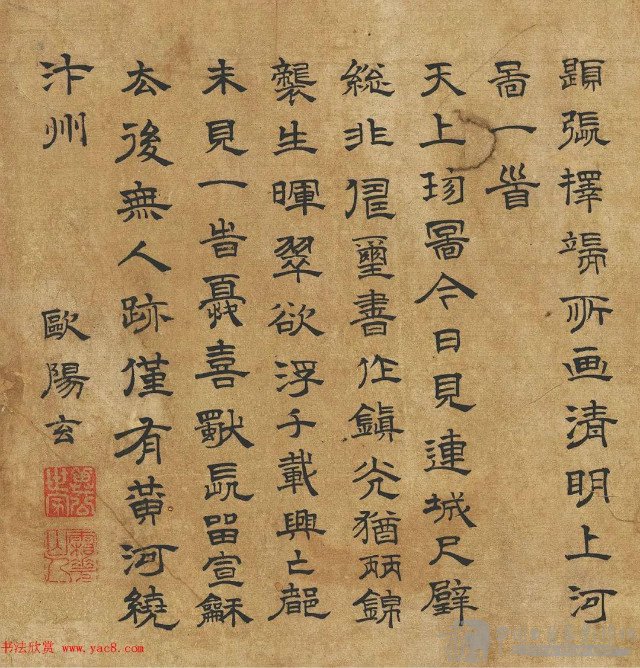 題張擇端所画清明上河
啚一首
天上珎圖今日見連城尺璧
総非璽書作鎮光猶炳錦
襲生暉翠欲浮千載興亡都
未見一旹憂喜長留宣龢
去後無人跡僅有黄河繞
汴州
歐陽玄
书法欣赏 www.yac8.com